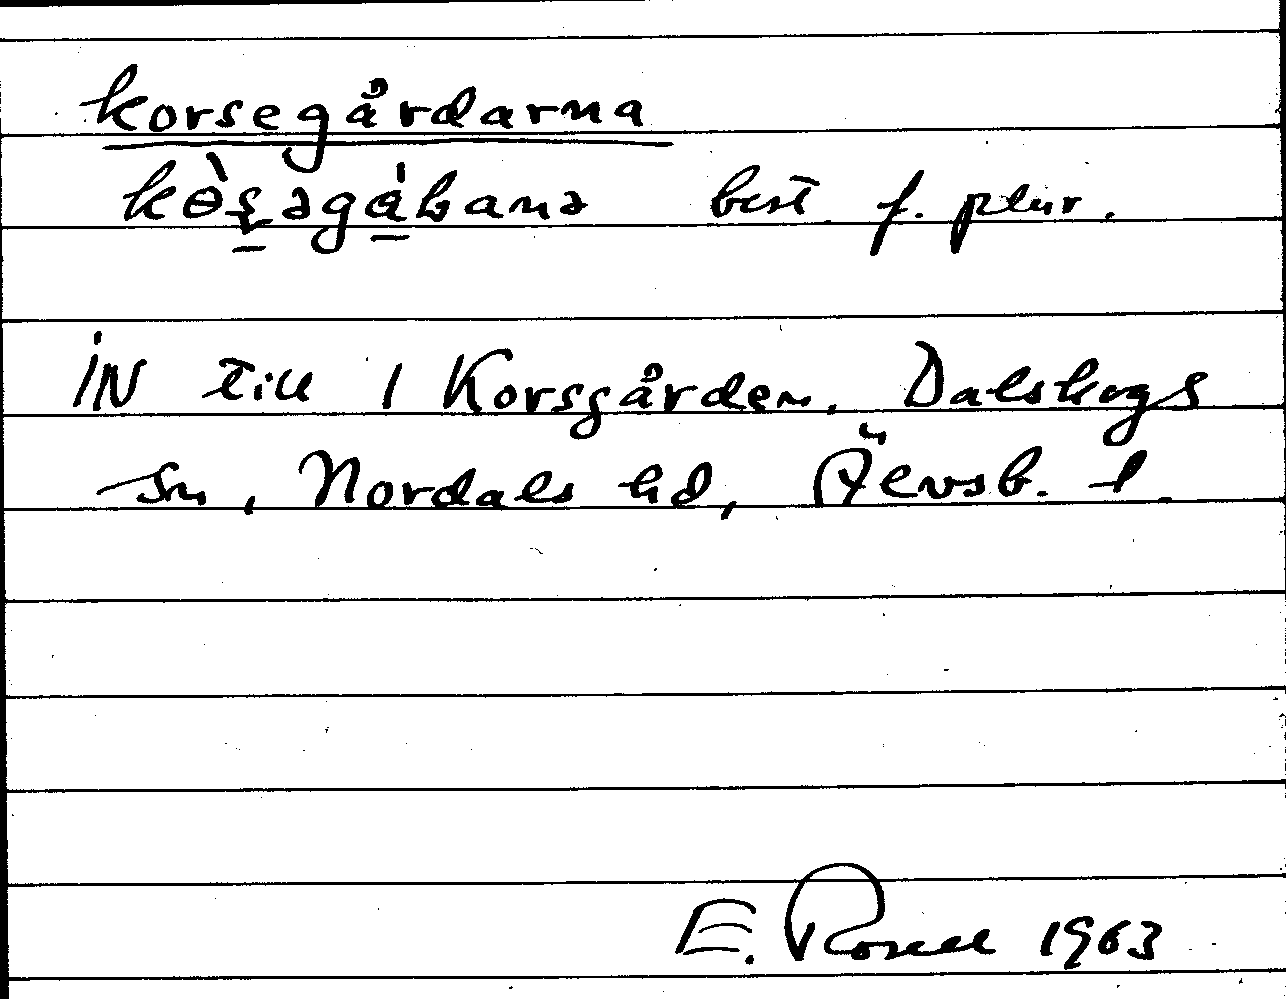 korsegårdarna
kɵ̀ş̱əgà̱ɫ̣anə best. f. plur.
IN till 1 Korsgården. Dalskogs
sn, Nordals hd, Älvsb. l.
E. Rosell 1963